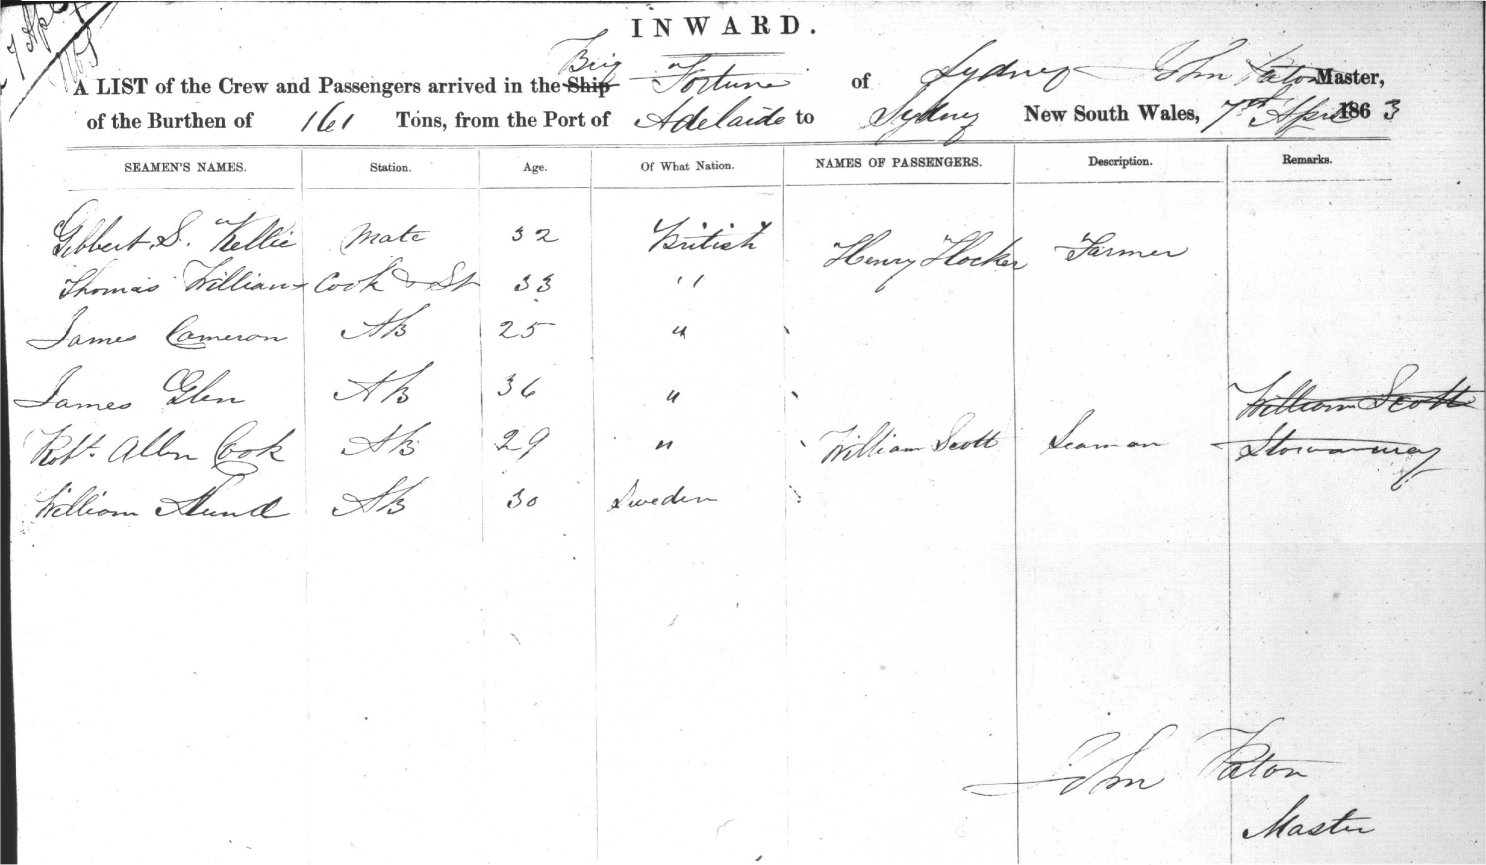 7 Apl
INWARD.
A LIST of the Crew and Passengers arrived in the Ship Brig Fortune of Sydney John Paton Master,
of the Burthen of 161 Tons, from the Port of Adelaide to Sydney New South Wales, 7th April 1863
SEAMEN'S NAMES. Station. Age. Of What Nation. NAMES OF PASSENGERS. Description. Remarks.
Gibbert S. Kellie Mate 32 British Henry Hocker Farmer
Thomas Williams Cook & St 33 "
James Cameron AB 25 "
James Glen AB 36 " William Scott
Robt. Allen Cook AB 29 " William Scott Seaman Stowaway
William AB 30 Sweden
John Paton
Master